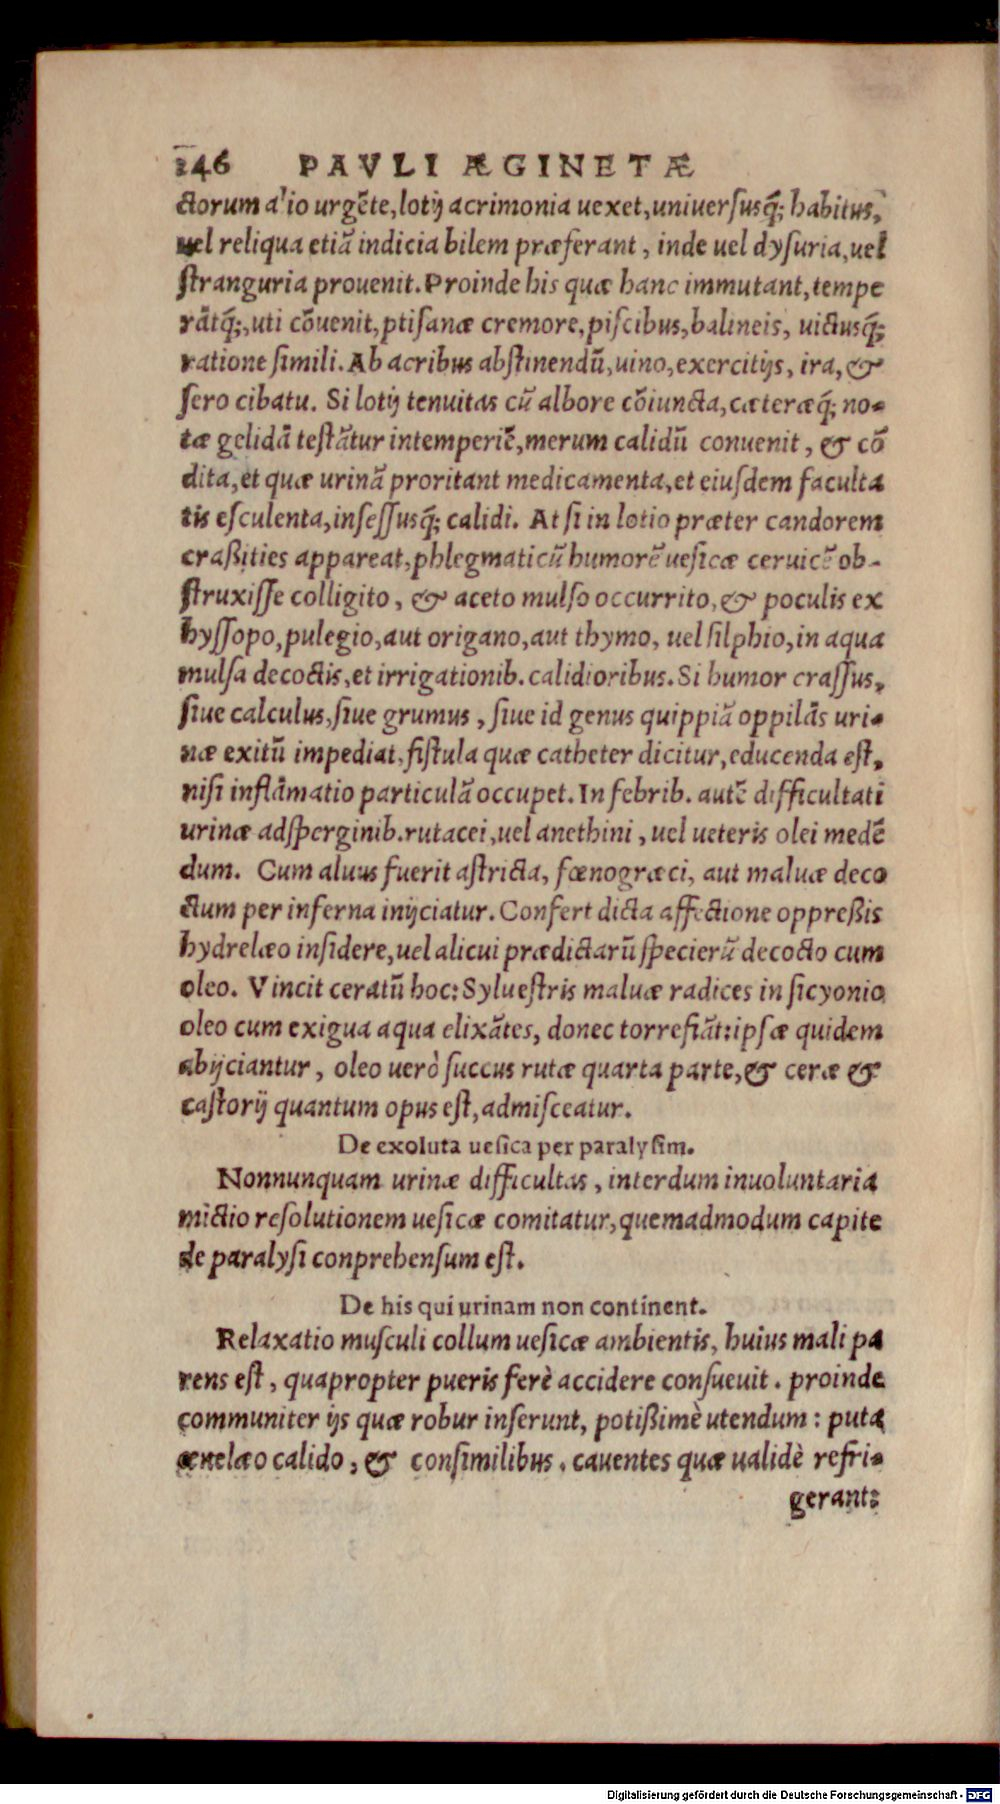 246 PAVLI ÆGINETÆ
ctorum alio urgēte, lotij acrimonia uexet, uniuersusq́; habitus,
uel reliqua etiā indicia bilem præferant, inde uel dysuria, uel
stranguria prouenit. Proinde his quæ hanc immutant, tempe
rātq́;, uti cōuenit, ptisanæ cremore, piscibus, balineis, uictusq́;
ratione simili. Ab acribus abstinendū, uino, exercitijs, ira, &
sero cibatu. Si lotij tenuitas cū albore cōiuncta, cæteræq́; no-
tæ gelidā testātur intemperiē, merum calidū conuenit, & cō
dita, et quæ urinā proritant medicamenta, et eiusdem faculta
tis esculenta, insessusq́; calidi. At si in lotio præter candorem
craßities appareat, phlegmaticū humorē uesicæ ceruicē ob-
struxisse colligito, & aceto mulso occurrito, & poculis ex
hyssopo, pulegio, aut origano, aut thymo, uel silphio, in aqua
mulsa decoctis, et irrigationib. calidioribus. Si humor crassus,
siue calculus, siue grumus, siue id genus quippiā oppilās uri-
næ exitū impediat, fistula quæ catheter dicitur, educenda est,
nisi inflāmatio particulā occupet. In febrib. autē difficultati
urinæ adsperginib. rutacei, uel anethini, uel ueteris olei medē
dum. Cum aluus fuerit astricta, fœnogræci, aut maluæ deco
ctum per inferna inijciatur. Confert dicta affectione oppreßis
hydrelæo insidere, uel alicui prædictarū specierū decocto cum
oleo. Vincit ceratū hoc: Syluestris maluæ radices in sicyonio
oleo cum exigua aqua elixātes, donec torrefiāt: ipsæ quidem
abijciantur, oleo uerò succus rutæ quarta parte, & ceræ &
castorij quantum opus est, admisceatur.
De exoluta uesica per paralysim.
Nonnunquam urinæ difficultas, interdum inuoluntaria
mictio resolutionem uesicæ comitatur, quemadmodum capite
de paralysi conprehensum est.
De his qui urinam non continent.
Relaxatio musculi collum uesicæ ambientis, huius mali pa
rens est, quapropter pueris ferè accidere consueuit. proinde
communiter ijs quæ robur inserunt, potißimè utendum: puta
œnelæo calido, & consimilibus, cauentes quæ ualidè refri-
gerant:
Digitalisierung gefördert durch die Deutsche Forschungsgemeinschaft - DFG